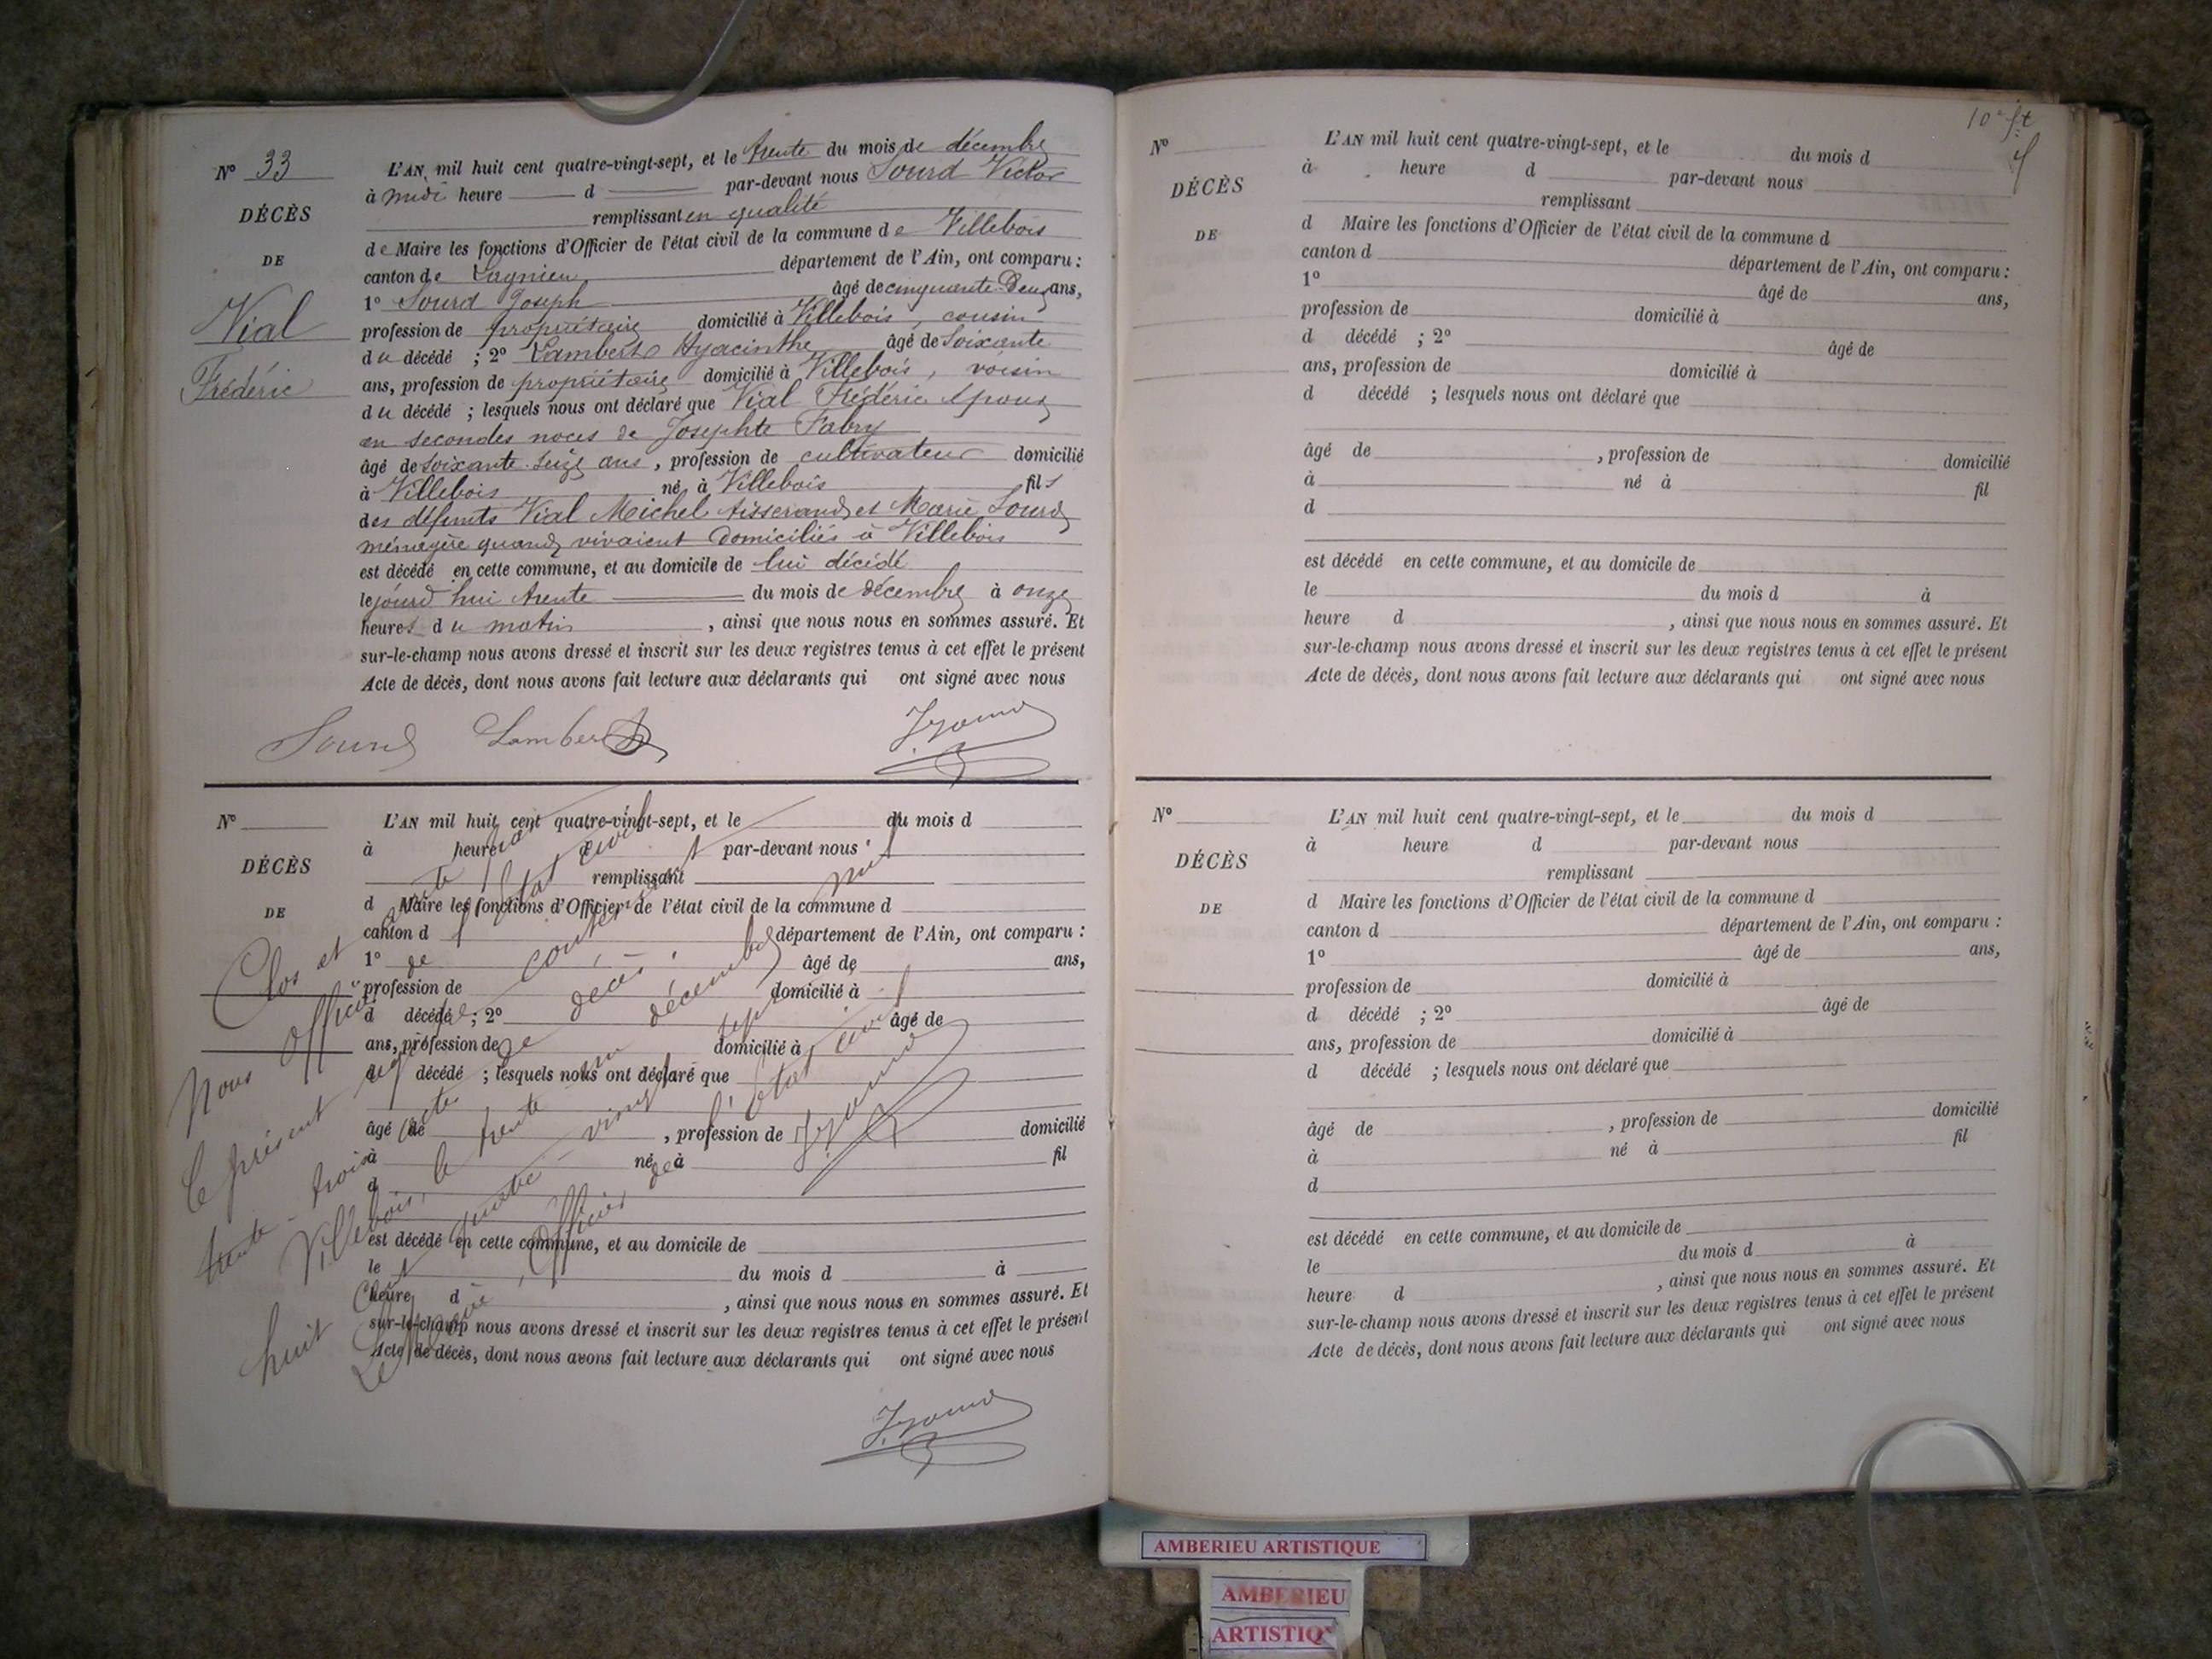 N° 33
DÉCÈS
DE
Vial
Frédéric
L'AN mil huit cent quatre-vingt-sept, et le trente du mois de décembre
à midi heure d par-devant nous Sourd Victor
remplissant en qualité
de Maire les fonctions d'Officier de l'état civil de la commune de Villebois
canton de Lagnieu département de l'Ain, ont comparu :
1° Sourd Joseph âgé de cinquante Deux ans,
profession de propriétaire domicilié à Villebois, cousin
du décédé ; 2° Lambert Hyacinthe âgé de Soixante
ans, profession de propriétaire domicilié à Villebois, voisin
du décédé ; lesquels nous ont déclaré que Vial Frédéric époux
en secondes noces de Josephte Fabry
âgé de soixante-seize ans, profession de cultivateur domicilié
à Villebois né à Villebois fils
des défunts Vial Michel tisserand et Marie Sourd
ménagère quand vivaient Domiciliés à Villebois
est décédé en cette commune, et au domicile de lui décédé
le jourd'hui trente du mois de décembre à onze
heures du matin, ainsi que nous nous en sommes assuré. Et
sur-le-champ nous avons dressé et inscrit sur les deux registres tenus à cet effet le présent
Acte de décès, dont nous avons fait lecture aux déclarants qui ont signé avec nous
Sourd Lambert
N°
DÉCÈS
DE
L'AN mil huit cent quatre-vingt-sept, et le du mois d
à heure d par-devant nous
remplissant
d Maire les fonctions d'Officier de l'état civil de la commune d
canton d département de l'Ain, ont comparu :
1° âgé de ans,
profession de domicilié à
d décédé ; 2° âgé de
ans, profession de domicilié à
d décédé ; lesquels nous ont déclaré que
âgé de , profession de domicilié
à né à fil
d
est décédé en cette commune, et au domicile de
le du mois d à
heure d , ainsi que nous nous en sommes assuré. Et
sur-le-champ nous avons dressé et inscrit sur les deux registres tenus à cet effet le présent
Acte de décès, dont nous avons fait lecture aux déclarants qui ont signé avec nous
Clos et arrêté par
Nous Officier de l'état civil
le présent registre contenant
trente-trois actes de décès.
Villebois, le trente un décembre mil
huit Cent quatre-vingt sept
Le Maire, Officier de l'état civil
N°
DÉCÈS
DE
L'AN mil huit cent quatre-vingt-sept, et le du mois d
à heure d par-devant nous
remplissant
d Maire les fonctions d'Officier de l'état civil de la commune d
canton d département de l'Ain, ont comparu :
1° âgé de ans,
profession de domicilié à
d décédé ; 2° âgé de
ans, profession de domicilié à
d décédé ; lesquels nous ont déclaré que
âgé de , profession de domicilié
à né à fil
d
est décédé en cette commune, et au domicile de
le du mois d à
heure d , ainsi que nous nous en sommes assuré. Et
sur-le-champ nous avons dressé et inscrit sur les deux registres tenus à cet effet le présent
Acte de décès, dont nous avons fait lecture aux déclarants qui ont signé avec nous
N°
DÉCÈS
DE
L'AN mil huit cent quatre-vingt-sept, et le du mois d
à heure d par-devant nous
remplissant
d Maire les fonctions d'Officier de l'état civil de la commune d
canton d département de l'Ain, ont comparu :
1° âgé de ans,
profession de domicilié à
d décédé ; 2° âgé de
ans, profession de domicilié à
d décédé ; lesquels nous ont déclaré que
âgé de , profession de domicilié
à né à fil
d
est décédé en cette commune, et au domicile de
le du mois d à
heure d , ainsi que nous nous en sommes assuré. Et
sur-le-champ nous avons dressé et inscrit sur les deux registres tenus à cet effet le présent
Acte de décès, dont nous avons fait lecture aux déclarants qui ont signé avec nous
AMBERIEU ARTISTIQUE
AMBERIEU
ARTISTIQ